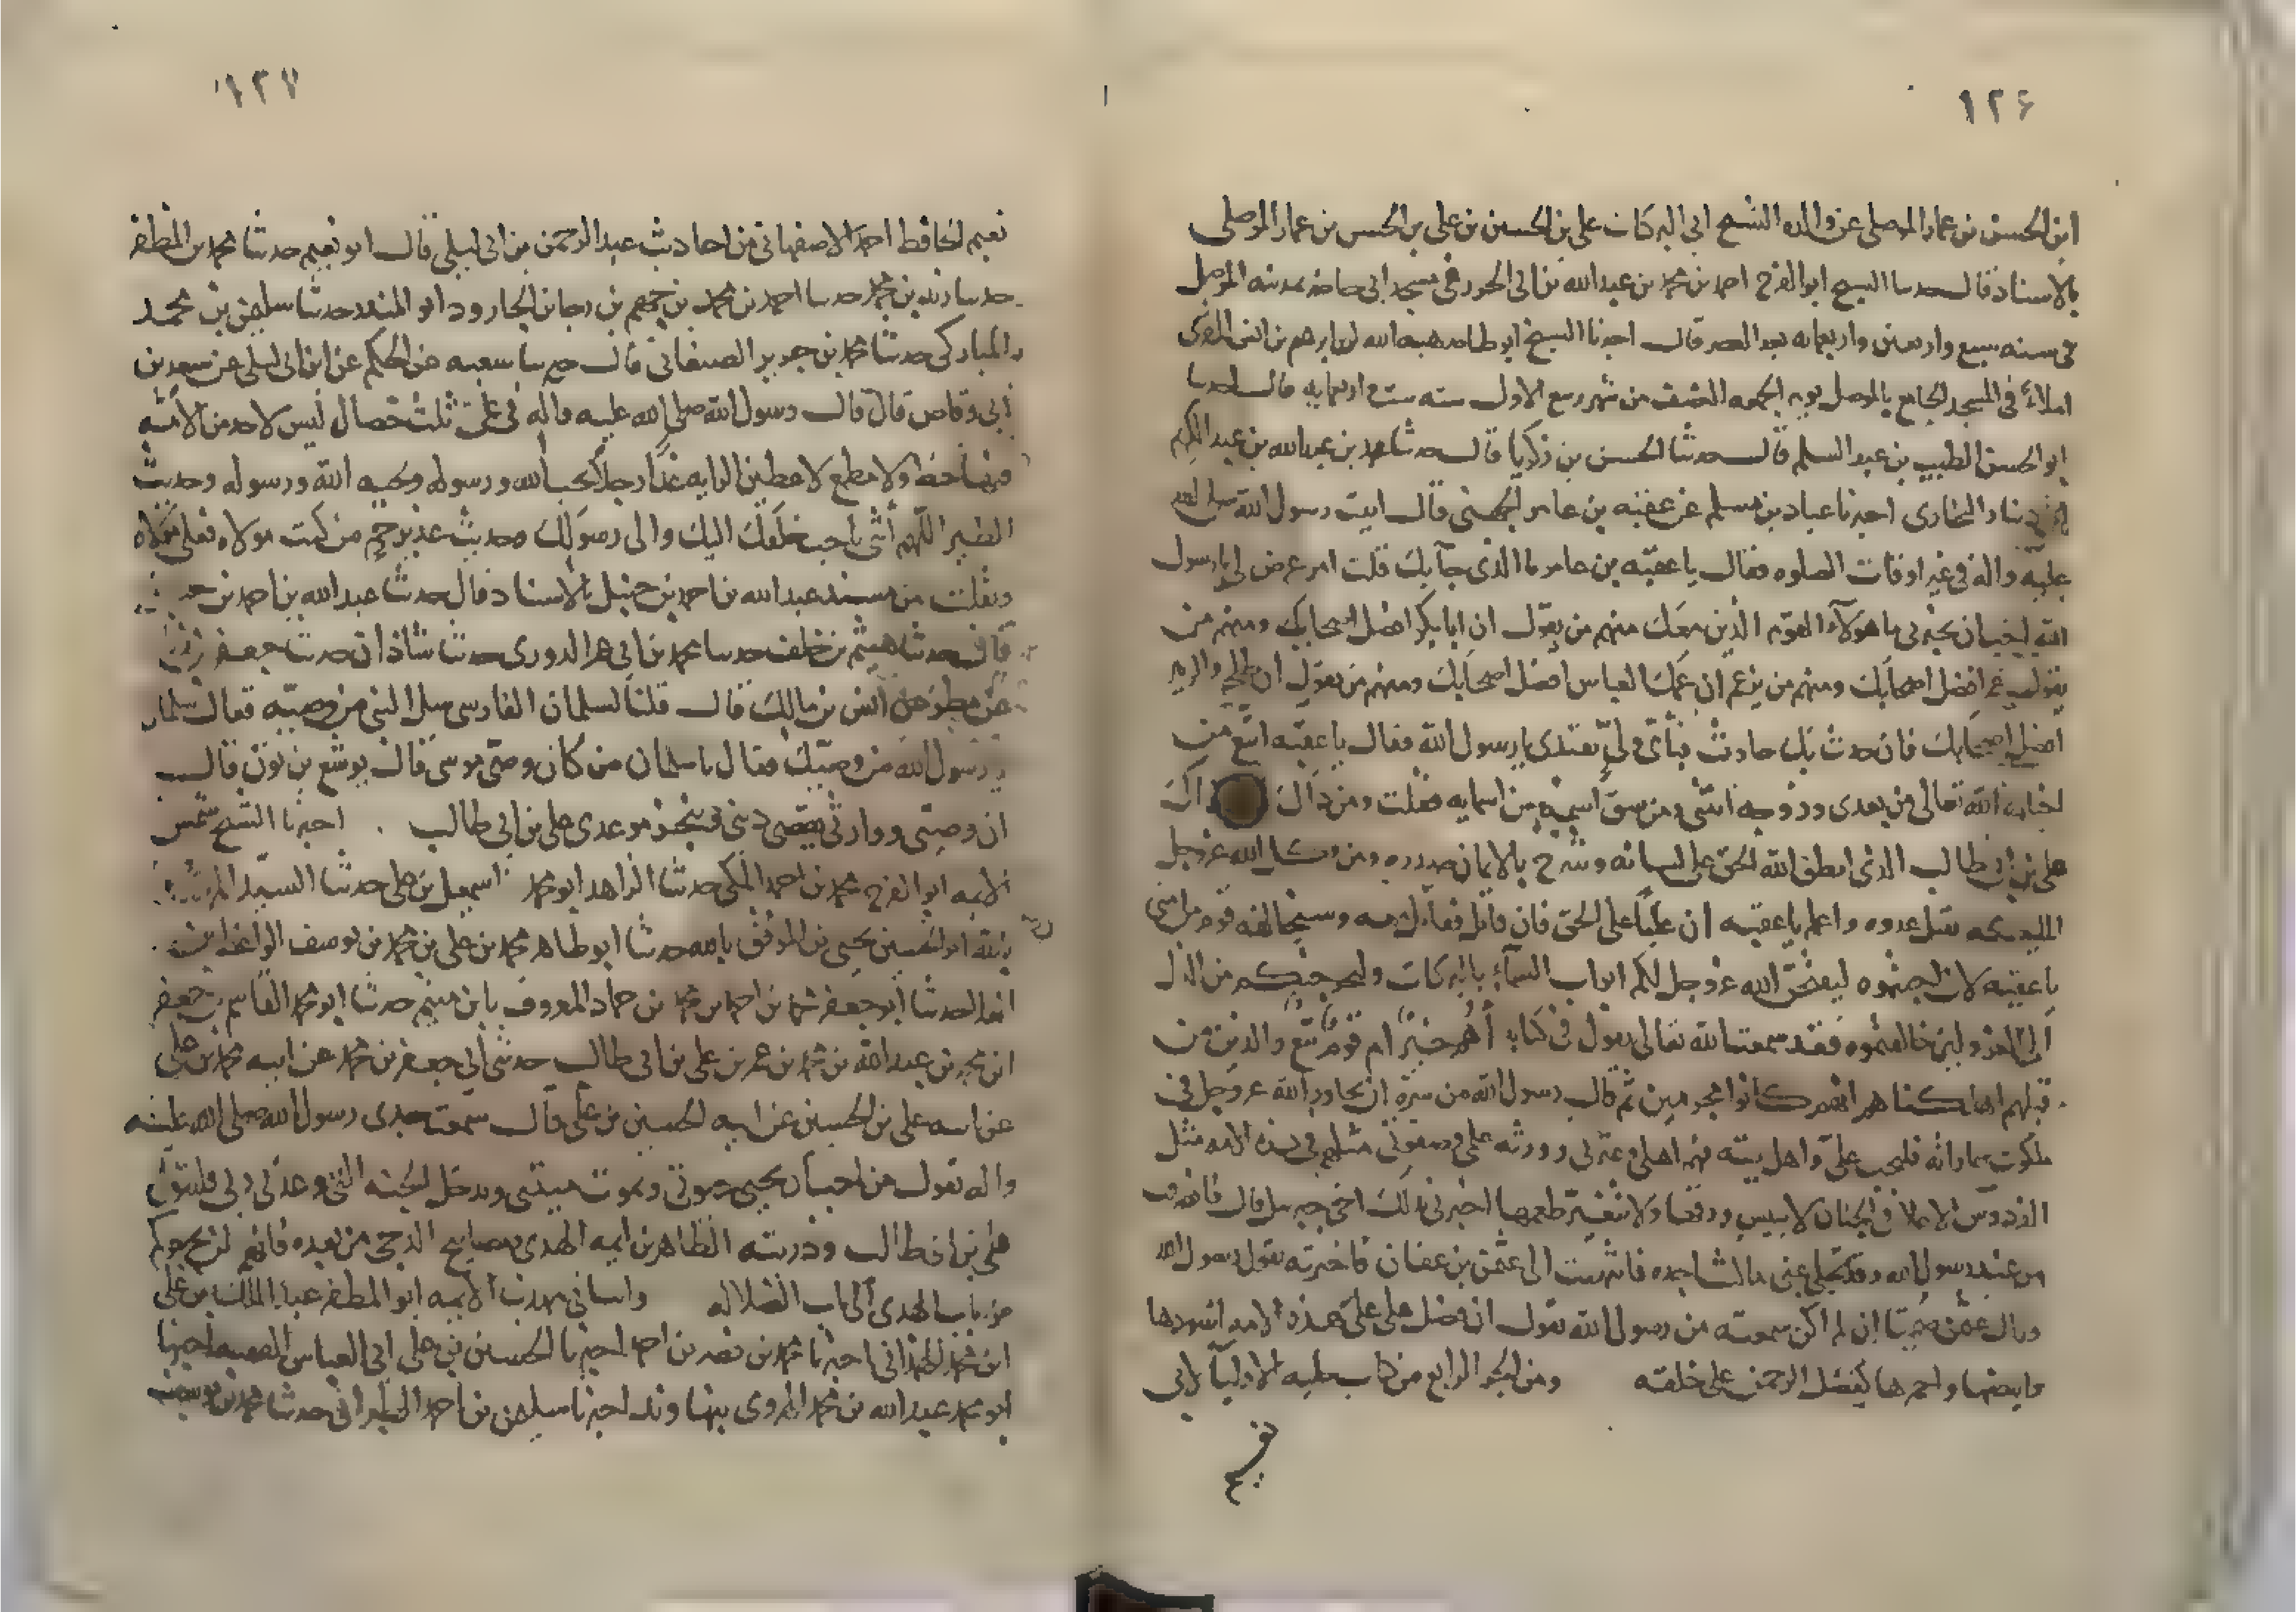 ١٢٦
ابن الحسن بن عمار الموصلى عن والده الشيخ ابى البركات على بن الحسين بن على بن الحسن بن عمار الموصلى
بالاسناد قال حدثنا الشيخ ابو الفرج احمد بن محمد بن عبد الله بن ابى الحور فى مسجد ابى حاضر بمدينة الموصل
فى سنه سبع واربعين واربعمايه بعد العصر قال اخبرنا الشيخ ابو طاهر هبه الله بن ابرهيم بن انس المقرى
املاءً فى المسجد الجامع بالموصل يوم الجمعه النصف من شهر ربيع الاول سنه ست واربعمايه قال حدثنا
ابو الحسن الطيب بن عبد السلم قال حدثنا الحسن بن زكريا قال حدثنا محمد بن عبد الله بن عبد الكريم
دينار البخارى اخبرنا عباد بن مسلم عن عقبه بن عامر الجهنى قال اتيت رسول الله صلى الله
عليه واله فى غير اوقات الصلوه فقال يا عقبه بن عامر ما الذى جآ بك قلت امر عرض لى يا رسول
الله احب ان تخبرنى ما هولآء القوم الذين معك منهم من يقول ان ابا بكر افضل اصحابك ومنهم من
يقول عمر افضل اصحابك ومنهم من يزعم ان عمك العباس افضل اصحابك ومنهم من يقول ان طلحه والزبير
افضل اصحابك فان حدث بك حادث فبأى ولىّ نقتدى يا رسول الله فقال يا عقبه اتبع من
اختاره الله تعالى من بعدى وزوجه ابنتى ومن شق اسمه من اسمايه فقلت ومن ذاك قال ذاك
على بن ابى طالب الذى انطق الله الحق على لسانه وشرح بالايمان صدره ومن الله عز وجل
عدوه واعلم يا عقبه ان علياً على الحق فان قاتل فقاتل معه وسيخالفه قوم من امتى
يا عقبه لان ليفتحن الله عز وجل لكم ابواب السمآء بالبركات وليخرجنكم من الذل
الى العز ولين خالفتموه فقد سمعت الله تعالى يقول فى كتابه أهُم خيرٌ ام قومُ تُبّع والذين من
قبلهم اهلكناهم انهم كانوا مجرمين ثم قال رسول الله من سره ان يجاور الله عز وجل فى
ملكوت سماواته فليحب علىّ واهل بيته فهم اهلى وعترتى وورثه علمى وصفوتى مثلهم فى هذه الامه مثل
الفردوس الاعلا فى الجنان لا ييبس ورقها ولا يتغيّر طعمها اخبرنى بذلك اخى جبريل قال فانصرفت
من عند رسول الله وقد تجلى عنى ما كنت اجده فاتيت الى عثمن بن عفان فاخبرته بقول رسول الله
وقال عثمن صُمّتا ان لم اكن سمعته من رسول الله يقول ان فضل على علىّ هذه الامه اسودها
وابيضها واحمرها كفضل الرحمن على خلقه ومن الجزء الرابع من كتاب حليه الاوليآ لابى
١٢٧
نعيم الحافظ احمد الاصفهانى من احاديث عبد الرحمن بن ابى ليلى قال ابو نعيم حدثنا محمد بن المظفر
حدثنا بن محمد حدثنا احمد بن محمد بن جهم بن رجا بن الجارود ابو المنذر حدثنا سليمن بن محمد
المباركى حدثنا محمد بن جرير الصنعانى قال حدثنا شعبه عن الحكم عن ابن ابى ليلى عن سعد بن
ابى وقاص قال قال رسول الله صلى الله عليه واله فى علىّ ثلث خصال ليس لاحد من الامه
لاعطين الرايه غداً رجلاً يحب الله ورسوله ويحبه الله ورسوله وحديث
الطير اللهم أتنى باحب خلقك اليك والى رسولك وحديث غدير خم من كنت مولاه فعلى مولاه
ونقلت من مسند عبد الله بن احمد بن حنبل بالاسناد قال حدثنا عبد الله بن احمد بن
قال حدثنا هيثم بن خلف حدثنا محمد بن ابى عمر الدورى حدثنا شاذان حدثنا جعفر بن
عن مطر عن انس بن مالك قال قلنا لسلمان الفارسى سل النبى من وصيّه فقال سلمان
يا رسول الله من وصيّك فقال يا سلمان من كان وصى موسى قال يوشع بن نون قال
ان وصيّى ووارثى يقضى دينى وينجز موعدى على بن ابى طالب . اخبرنا الشيخ شمس
الايمه ابو الفرج محمد بن احمد المكى حدثنا الزاهد ابو محمد اسمعيل بن على حدثنا السيّد
بالله ابو الحسين يحيى بن الموفق بالله حدثنا ابو طاهر محمد بن على بن محمد بن يوسف الواعظ
حدثنا ابو جعفر محمد بن احمد بن محمد بن حماد المعروف بابن ميتم حدثنا ابو محمد القاسم بن جعفر
ابن محمد بن عبد الله بن محمد بن عمر بن على بن ابى طالب حدثنى ابى جعفر بن محمد عن ابيه محمد بن على
عن ابيه على بن الحسين عن ابيه الحسين بن على قال سمعت جدى رسول الله صلى الله عليه
واله يقول من احب ان يحيى حيوتى ويموت ميتتى ويدخل الجنه التى وعدنى ربى فليتول
على بن ابى طالب وذريته الطاهرين ايمه الهدى ومصابيح الدجى من بعده فانهم لن يخرجوكم
من باب الهدى الى باب الضلاله وانبانى مهذب الايمه ابو المظفر عبد الملك بن على
ابن محمد الهمذانى اخبرنا محمد بن نصر بن احمد اخبرنا الحسين بن على ابى العباس الفقيه اخبرنا
ابو محمد عبد الله بن محمد الهروى بنهاوند اخبرنا سليمن بن احمد الطبرانى حدثنا محمد بن يوسف